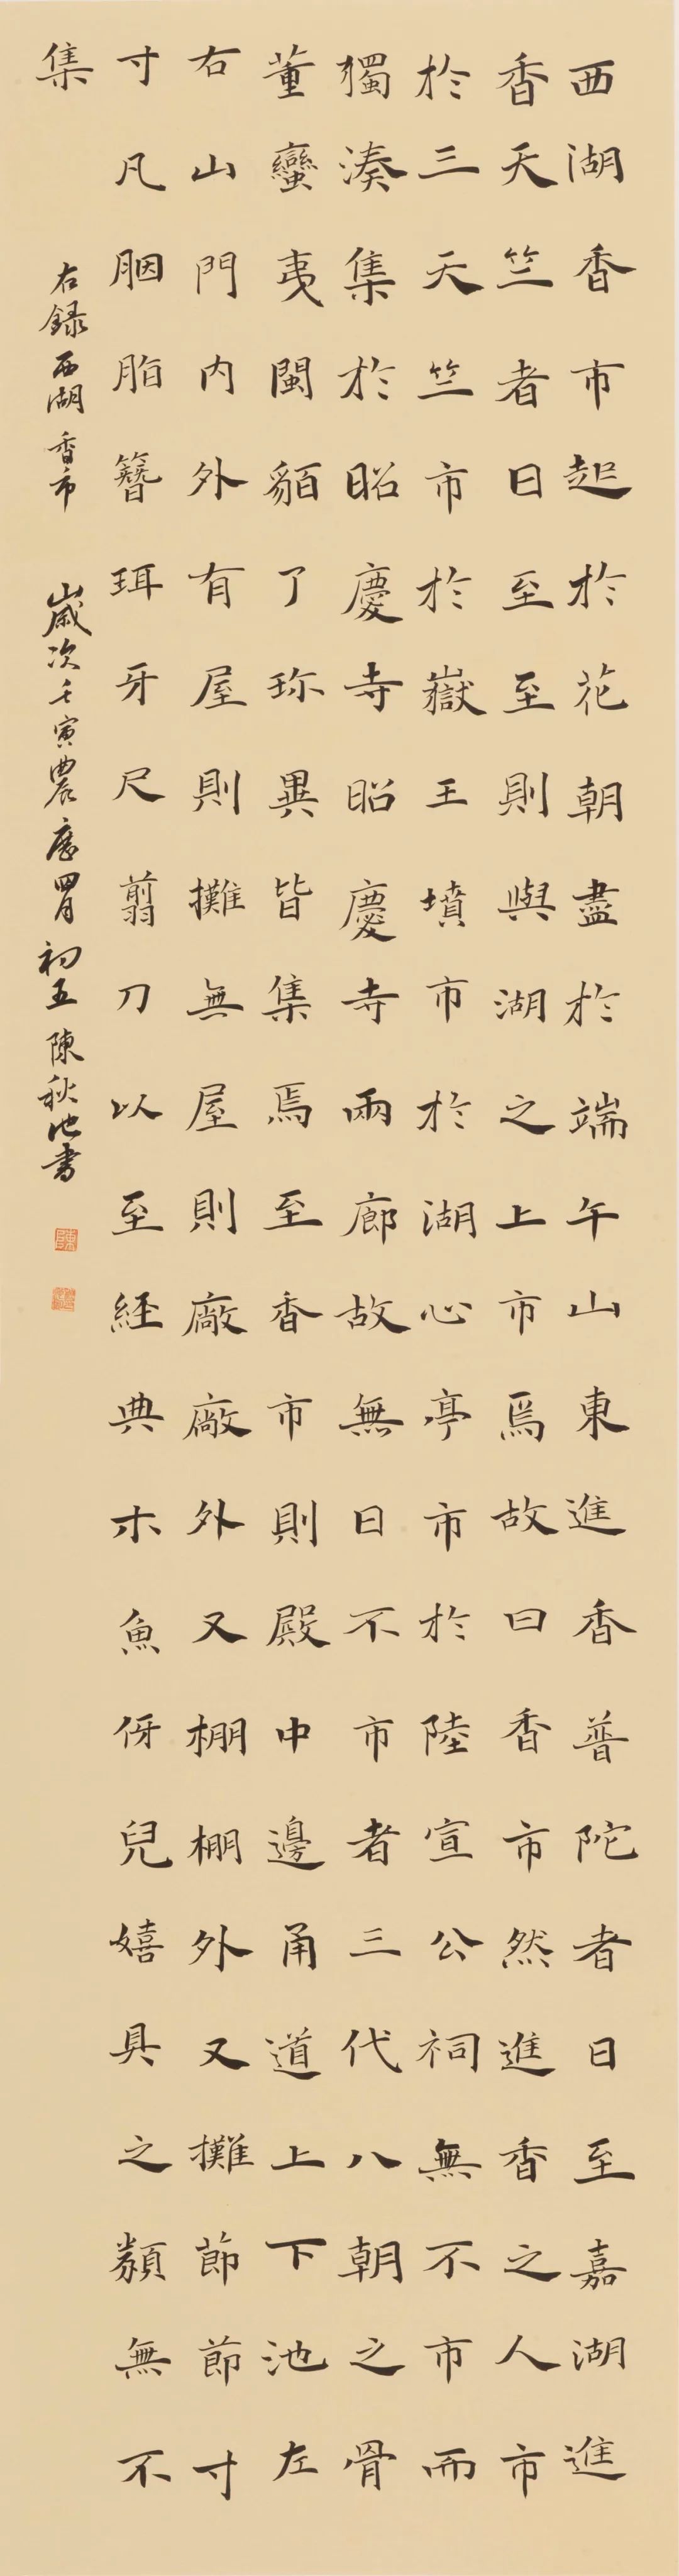 西湖香市起於花朝盡於端午山東進香普陀者日至嘉湖進
香天竺者日至至則與湖之上市焉故曰香市然進香之人市
於三天竺市於嶽王墳市於湖心亭市於陸宣公祠無不市而
獨湊集於昭慶寺昭慶寺兩廊故無日不市者三代八朝之骨
董蠻夷閩貊了珎異皆集焉至香市則殿中邊甬道上下池左
右山門内外有屋則攤無屋則廠廠外又棚棚外又攤節節寸
寸凡胭脂簪珥牙尺翦刀以至經典木魚伢兒嬉具之類無不
集
右録西湖香市
歲次壬寅農歷四月初五陳秋池书